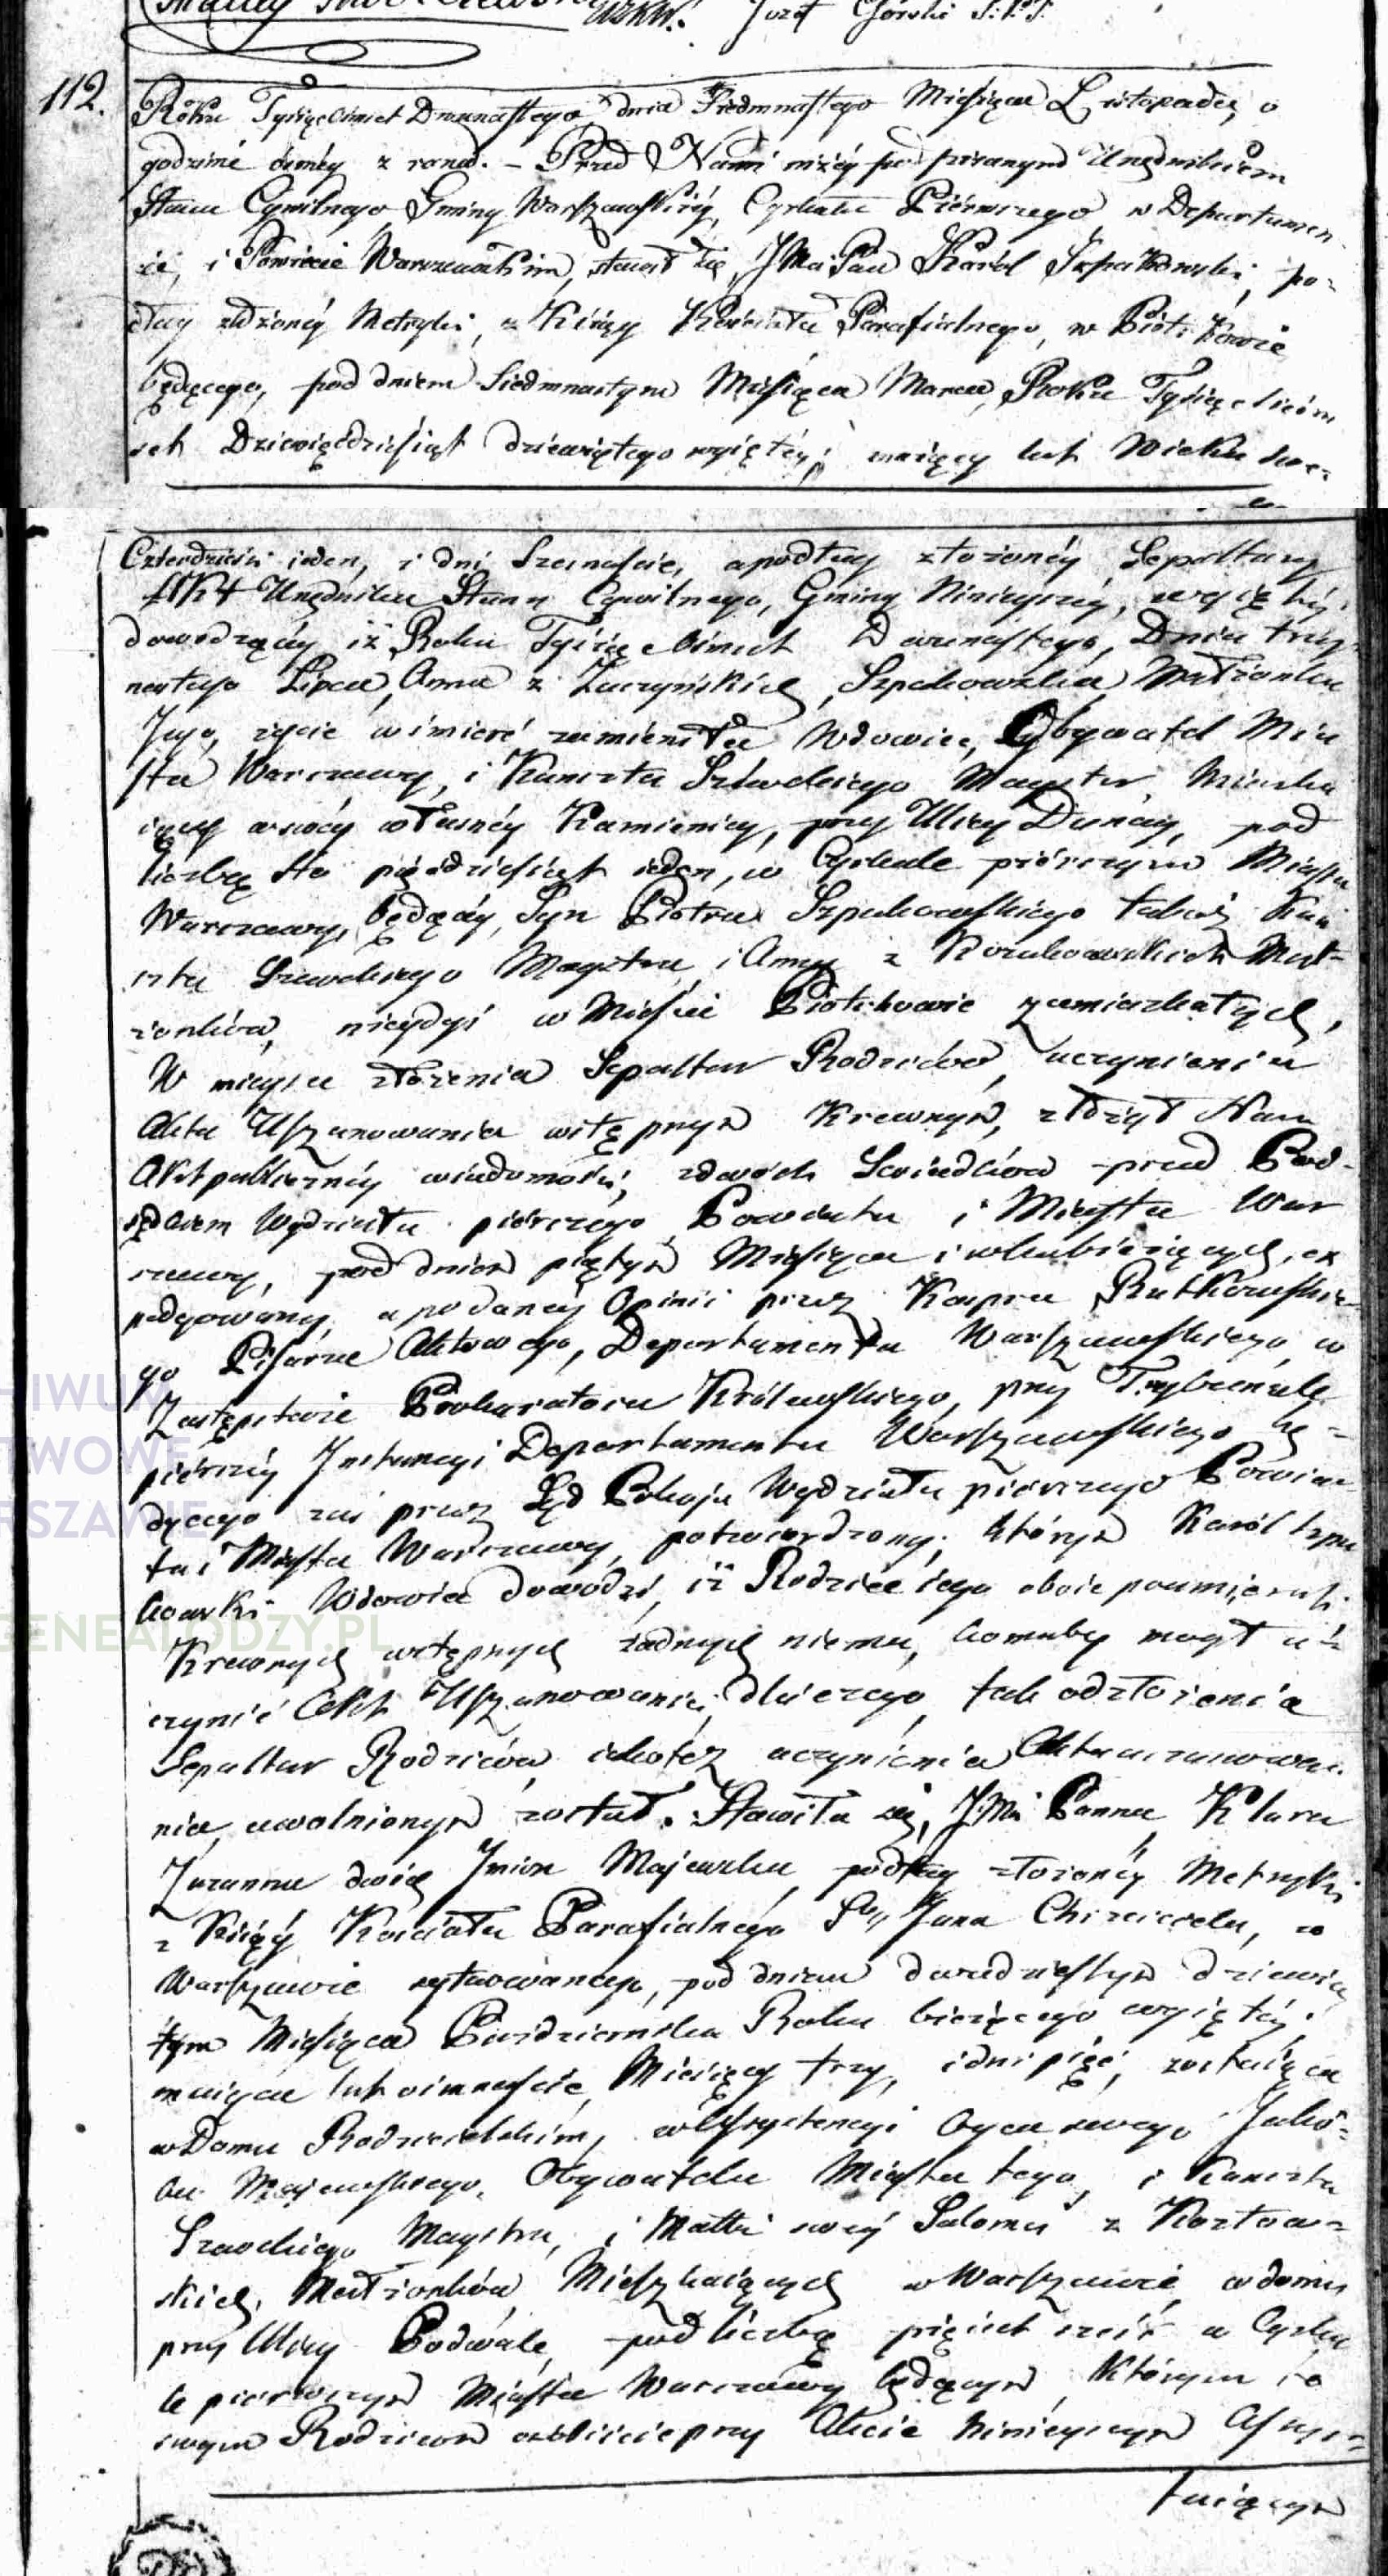 Józef Górski
112.
Roku Tysiąc Ośmset Dwunastego, dnia Siedmnastego Miesiąca Listopada, o
godzinie ósméy z rana. – Przed Nami niżéy podpisanym Urzędnikiem
Stanu Cywilnego Gminy Warszawskiéy, Cyrkułu Piérwszego w Departamen-
cie, i Powiecie Warszawskim, stawił się, JMci Pan Karól Szpakowski, po-
dług złożonéy Metryki, z Księgi Kościoła Parafialnego, w Piotrkowie
będącego, pod dniem Siedmnastym Miesiąca Marca, Roku Tysiąc siedm
set Dziewięćdziesiąt dziewiątego wyiętéy; maiący lat Wieku swe-
Czterdzieści ieden, i dni Szesnaście, a podług złożonéy Sepultury
Urzędnika Stanu Cywilnego, Gminy Ninieyszéy, wyiętéy,
dowodzącéy iż Roku Tysiąc Ośmset Dwunastego, Dnia trzy-
nastego Lipca, Anna z Zaczyńskich, Szpakowska Małżonka
Jego, życie w śmierć zamieniła Wdowiec, Obywatel Mia
sta Warszawy, i Kunsztu Szewckiego Maystr, Mieszka
iący w swéy własnéy Kamienicy, przy Ulicy Dunay, pod
liczbą sto pięćdziesiąt ieden, w Cyrkule piérwszym Miasta
Warszawy, będącéy, Syn Piotra Szpakowskiego także Kun
sztu Szewckiego Maystra, i Anny z Kozakowskich Mał-
żonków, niegdyś w Mieście Piotrkowie zamieszkałych,
W mieyscu złożenia Sepultur Rodziców, uczynienia
Aktu Uszanowania wstępnym Krewnym, złożył Nam
Akt publicznéy wiadomości, z dwóch Świadków przed Pod-
sędkiem Wydziału piérwszego, Powiatu i Miasta War
szawy, pod dniem piątym Miesiąca i roku bieżących, ex
pedyowany, a podanéy Opinii przez Kaspra Rutkowskie-
go Pisarza Aktowego, Departamentu Warszawskiego, w
Zastępstwie Prokuratora Królewskiego, przy Trybunale
piérwszéy Instancyi Departamentu Warszawskiego bę-
dącego zaś przez Sąd Pokoju Wydziału piérwszego Powia
tu i Miasta Warszawy, potwierdzony; którym Karól Szpa
kowski Wdowiec dowodzi, iż Rodzice iego oboie poumierali,
Krewnych wstępnych żadnych niema, komuby mógł u-
czynić Akt Uszanowania, dla czego, tak od złożenia
Sepultur Rodziców, iakoteż uczynienia Aktu uszanowa-
nia, uwolnionym został. Stawiła się, JMci Panna Klara
Zuzanna dwóch Imion Majewska, podług złożonéy Metryki
z Księgi Kościoła Parafialnego Sgo Jana Chrzciciela, w
Warszawie sytuowanego, pod dniem dwudziestym dziewią
tym Miesiąca Października Roku bieżącego wyiętéy;
maiąca lat ośmnaście, Miesięcy trzy, i dni pięć, zostaiąca
w Domu Rodzicielskim, w Assystencyi Oyca swego, Jakó-
ba Majewskiego, Obywatela Miasta tego, i Kunsztu
Szewckiego Maystra, i Matki swéy Salomei z Kozłow-
skich, Małżonków Mieszkaiących w Warszawie, w domu
przy Ulicy Podwale, pod liczbą pięćset sześć w Cyrku
le pierwszym Miasta Warszawy będącym, Którym to
swym Rodzicom osobiście przy Akcie ninieyszym Assys-
tuiącym